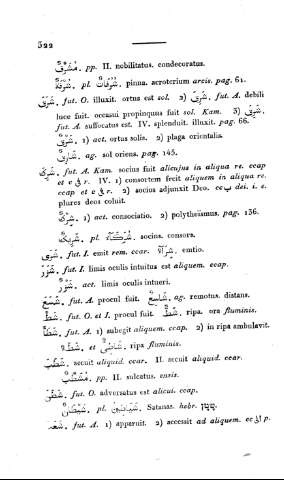 522
مُشَرَّفٌ. pp. II. nobilitatus. condecoratus.
شُرْفَةٌ, pl. شُرُفَاتٌ. pinna. acroterium arcis. pag. 61.
شَرَقَ. fut. O. illuxit. ortus est sol. 2) شَرِقَ. fut. A. debili
luce fuit. occasui propinquus fuit sol. Kam. 3) شَرِقَ.
fut. A. suffocatus est. IV. splenduit. illuxit. pag. 66.
شَرْقٌ. 1) act. ortus solis. 2) plaga orientalis.
شَارِقٌ. ag. sol oriens. pag. 145.
شَرِكَ. fut. A. Kam. socius fuit alicujus in aliqua re. ccap
et c فى r. IV. 1) consortem fecit aliquem in aliqua re.
ccap et c فى r. 2) socius adjunxit Deo. cc ب dei. i. e.
plures deos coluit.
شِرْكٌ. 1) act. consociatio. 2) polytheïsmus. pag. 136.
شَرِيكٌ, pl. شُرَكَآءُ. socius. consors.
شَرَى. fut. I. emit rem. ccar. شِرَآءٌ. emtio.
شَزَرَ. fut. I. limis oculis intuitus est aliquem. ccap.
شَزْرٌ. act. limis oculis intueri.
شَسَعَ. fut. A. procul fuit. شَاسِعٌ. ag. remotus. distans.
شَطَّ. fut. O. et I. procul fuit. شَطٌّ. ripa. ora fluminis.
شَطَأَ. fut. A. 1) subegit aliquem. ccap. 2) in ripa ambulavit.
شَطْءٌ. et شَاطِئٌ. ripa fluminis.
شَطَبَ. secuit aliquid. ccar. II. secuit aliquid. ccar.
مُشَطَّبٌ. pp. II. sulcatus. ensis.
شَطَنَ. fut. O. adversatus est alicui. ccap.
شَيْطَانٌ, pl. شَيَاطِينُ. Satanas. hebr. שטן.
شَعَدَ. fut. A. 1) apparuit. 2) accessit ad aliquem. cc الى p.